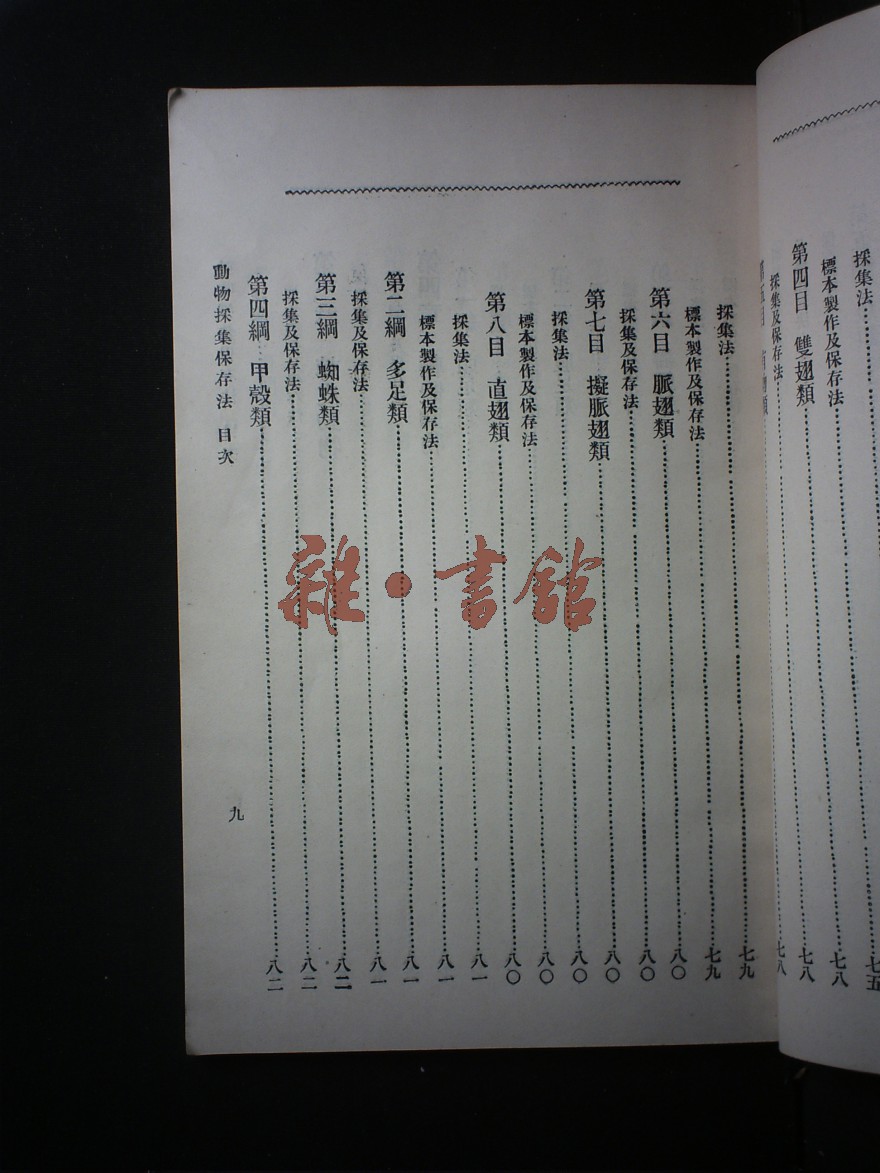 採集法……七五
標本製作及保存法……七八
第四目 雙翅類……七八
採集及保存法……七八
採集法……七九
標本製作及保存法……七九
第六目 脈翅類……八〇
採集及保存法……八〇
第七目 擬脈翅類……八〇
採集法……八〇
標本製作及保存法……八〇
第八目 直翅類……八〇
採集法……八一
標本製作及保存法……八一
第二綱 多足類……八一
採集及保存法……八一
第三綱 蜘蛛類……八二
採集及保存法……八二
第四綱 甲殼類……八二
動物採集保存法 目次
九
雜·書館